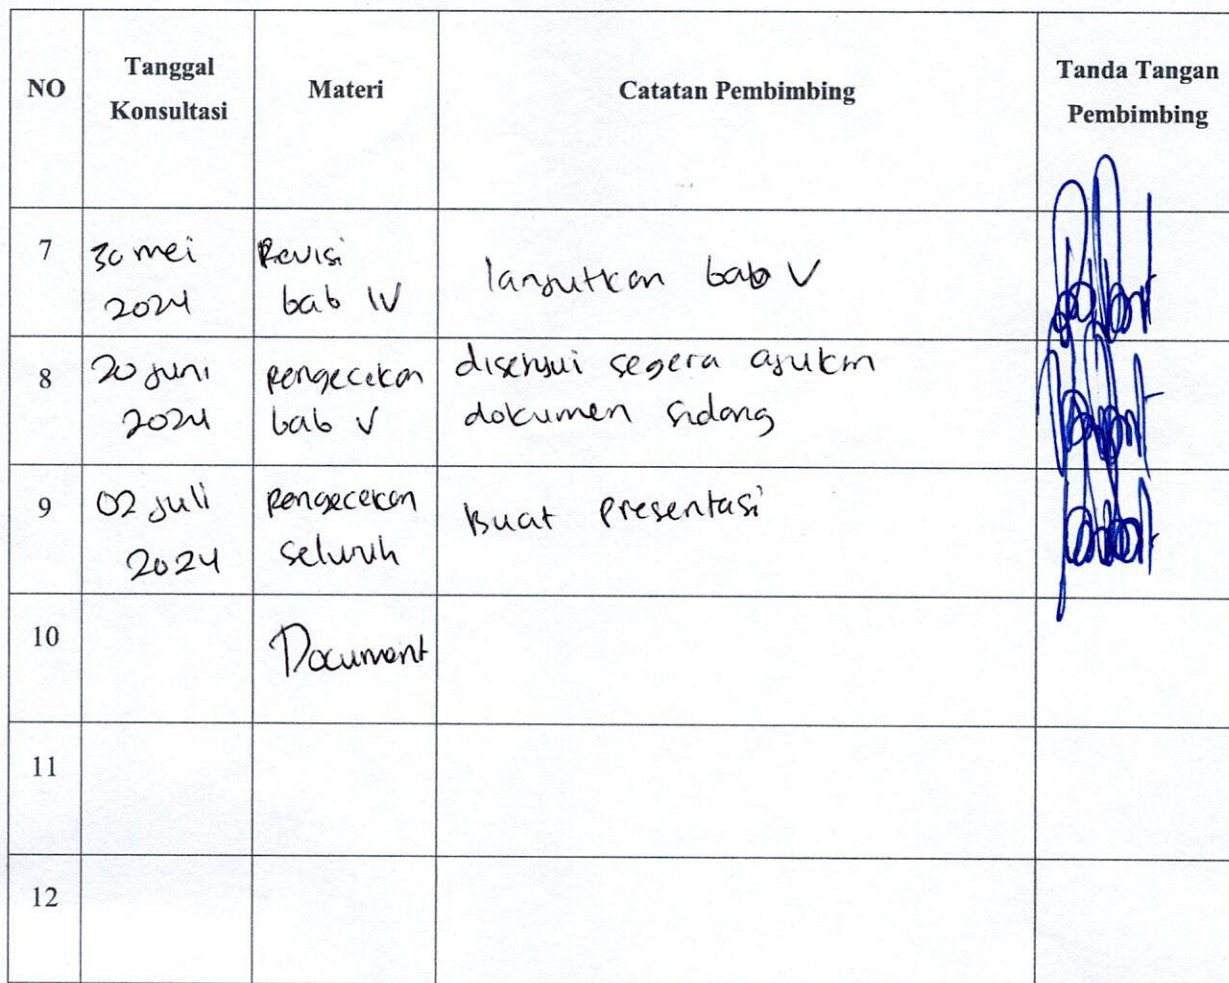 NO
Tanggal
Konsultasi
Materi
Catatan Pembimbing
Tanda Tangan
Pembimbing
7
30 mei
2024
Revisi
bab IV
lanjutkan bab V
8
20 juni
2024
pengecekan
bab V
disetujui segera ajukan
dokumen sidang
9
02 juli
2024
pengecekan
seluruh
Buat presentasi
10
Document
11
12